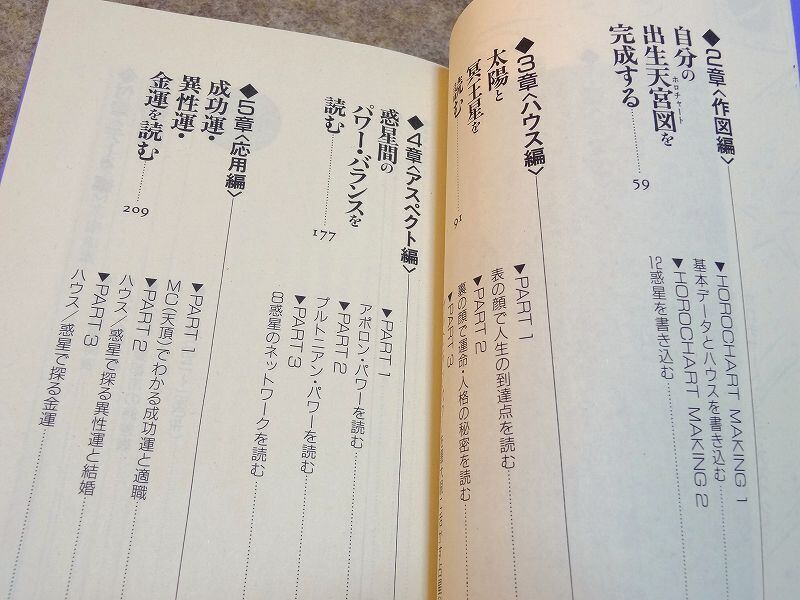 ◆2章〈作図編〉
自分の
出生天宮図を
ホロチャート
完成する
59
▼HOROCHART MAKING 1
基本データとハウスを書き込む
▼HOROCHART MAKING 2
12惑星を書き込む
◆3章〈ハウス編〉
太陽と
冥王星を
読む
91
▼PART 1
表の顔で人生の到達点を読む
▼PART 2
裏の顔で運命・人格の秘密を読む
▼PART 3
◆4章〈アスペクト編〉
惑星間の
パワー・バランスを
読む
177
▼PART 1
アポロン・パワーを読む
▼PART 2
プルトニアン・パワーを読む
▼PART 3
8惑星のネットワークを読む
◆5章〈応用編〉
成功運・
異性運・
金運を読む
209
▼PART 1
MC(天頂)でわかる成功運と適職
▼PART 2
ハウス/惑星で探る異性運と結婚
▼PART 3
ハウス/惑星で探る金運